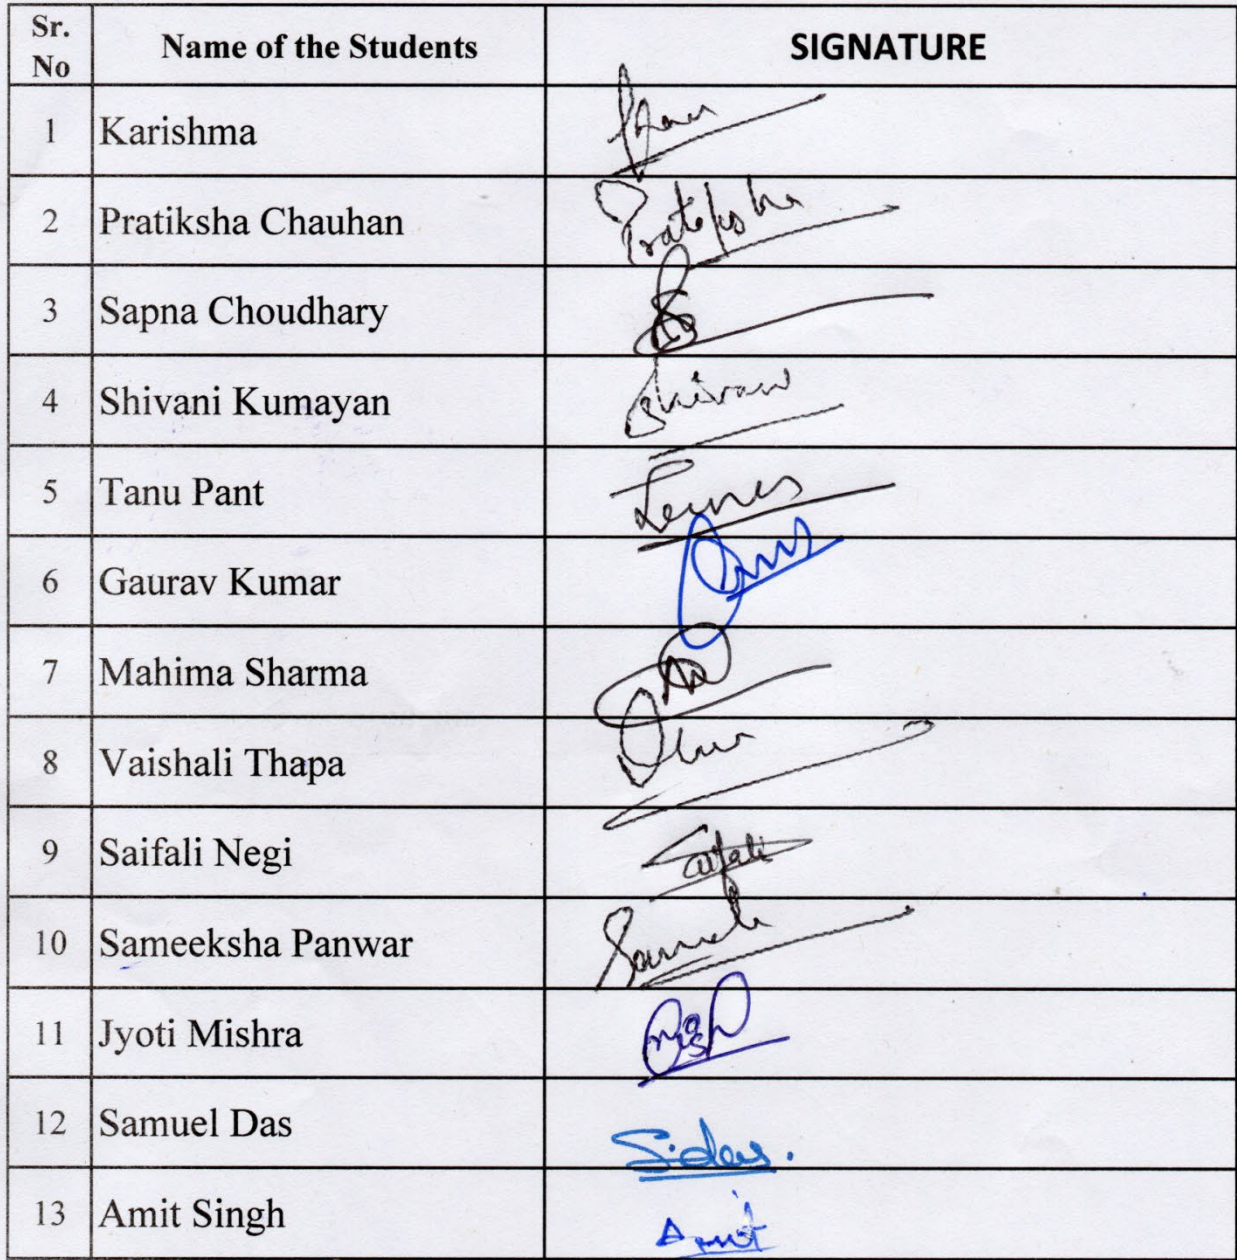 Sr. No Name of the Students SIGNATURE
1 Karishma
2 Pratiksha Chauhan Pratiksha
3 Sapna Choudhary
4 Shivani Kumayan Shivani
5 Tanu Pant
6 Gaurav Kumar
7 Mahima Sharma
8 Vaishali Thapa
9 Saifali Negi Saifali
10 Sameeksha Panwar
11 Jyoti Mishra
12 Samuel Das S.das.
13 Amit Singh Amit